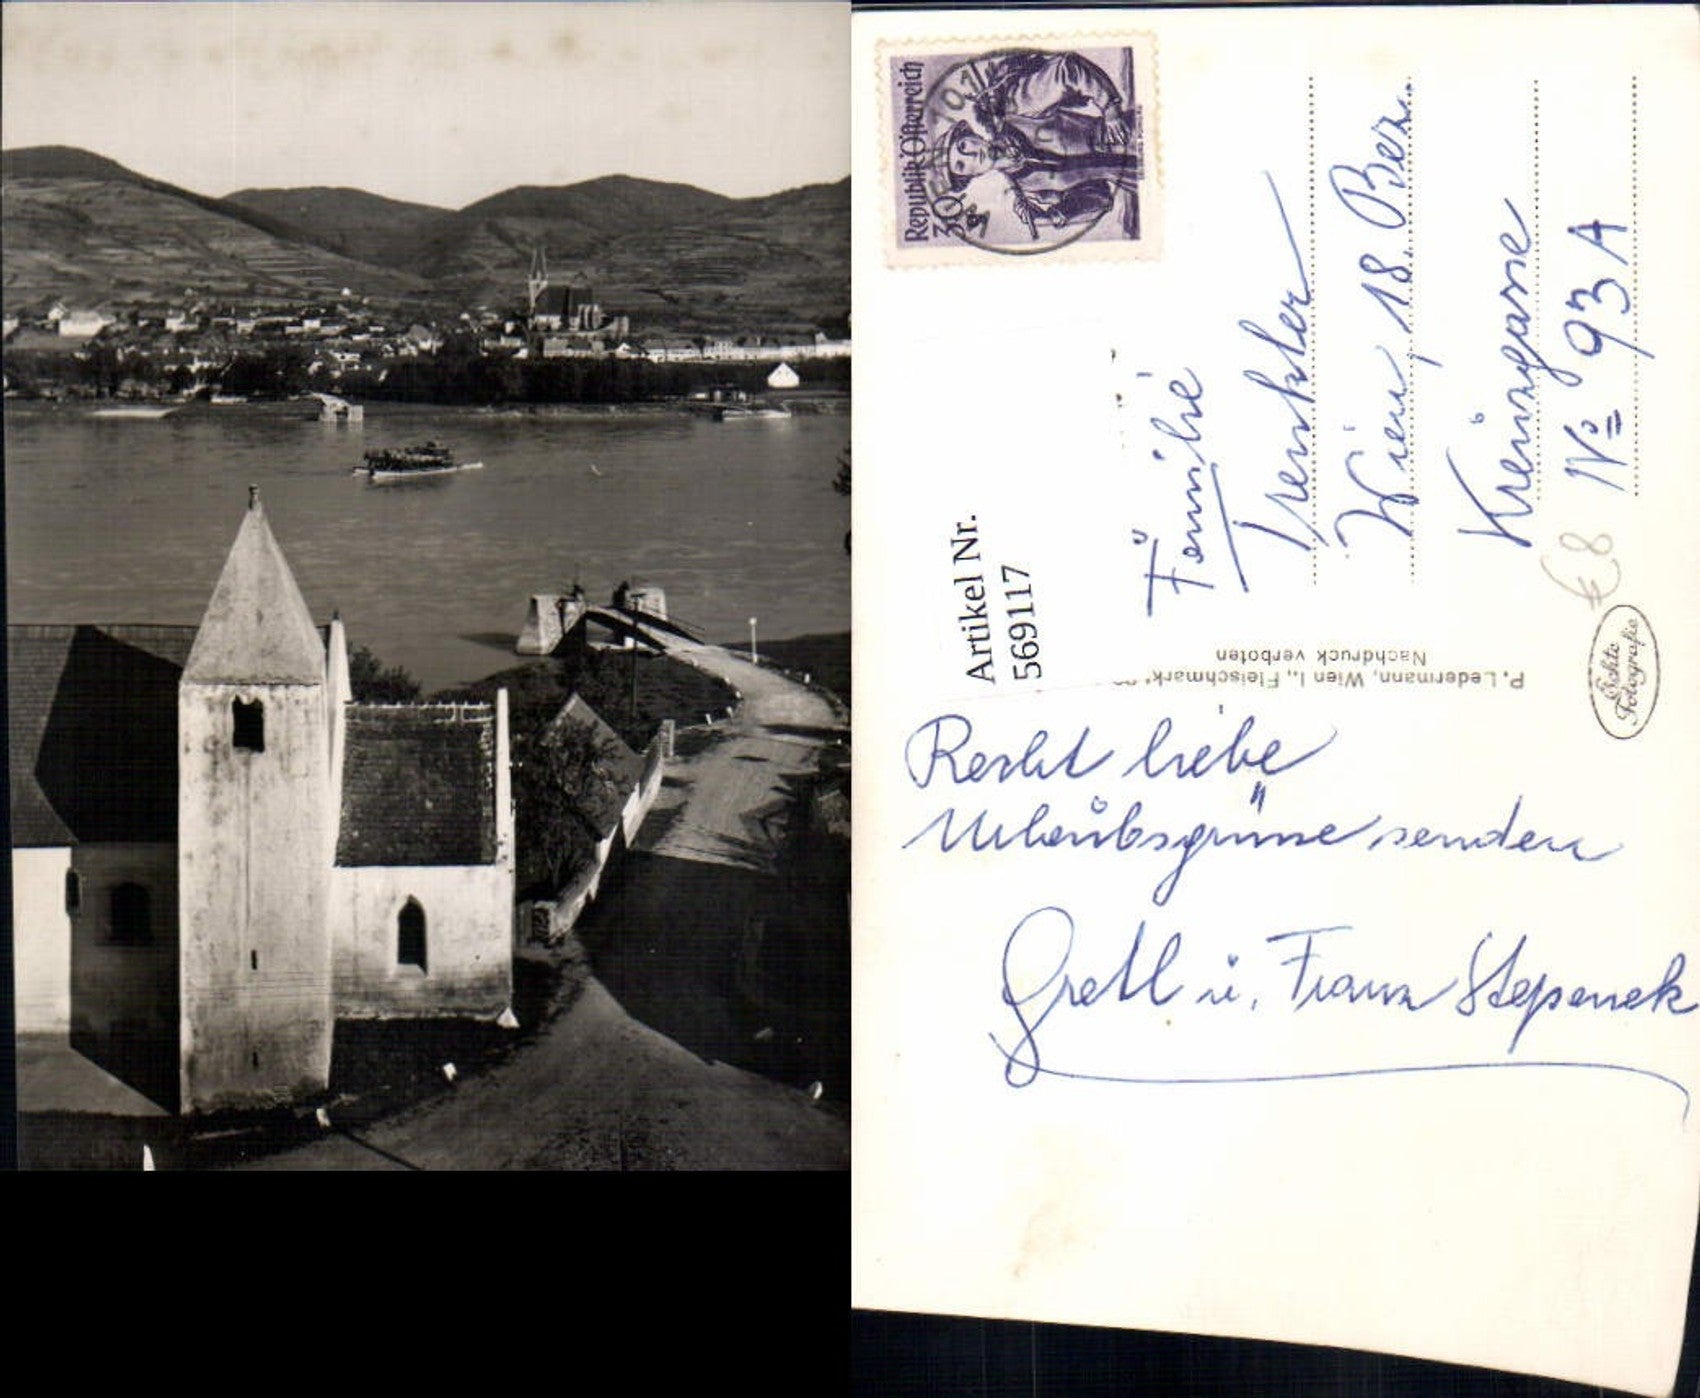 Republik Österreich
30g
Artikel Nr.
569117
Familie
Trenkler
Wien, 18. Bez.
Kreuzgasse
№ 93 A
€8
P. Ledermann, Wien I., Fleischmarkt
Nachdruck verboten
Echte
Fotografie
Recht liebe
Urlaubsgrüsse senden
Gretl u. Franz Stepanek